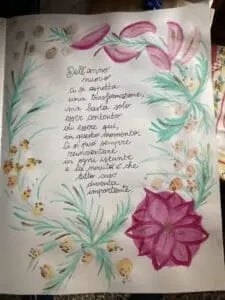 Dell'anno
nuovo
ci si aspetta
una trasformazione,
ma basta solo
esser contento
di essere qui,
in questo momento.
Ci si può sempre
reinventare
in ogni istante
e la novità è che
tutto ciò
diventa
importante